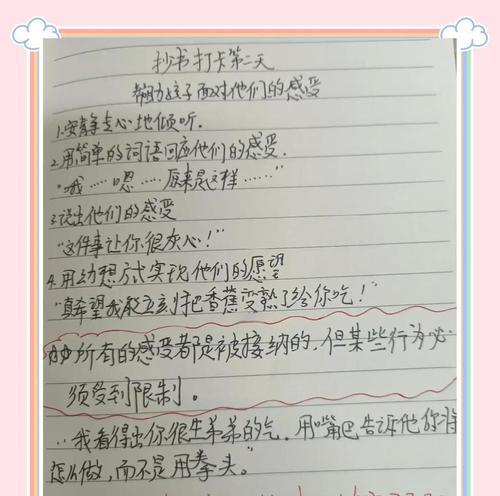 抄书打卡第二天
帮助孩子面对他们的感受
1.安静专心地倾听.
2.用简单的词语回应他们的感受.
"哦……嗯……原来是这样……"
3.说出他们的感受
"这件事让你很灰心!"
4.用幻想方式实现他们的愿望
"真希望我能立刻把香蕉变熟了给你吃!"
所有的感受都是被接纳的,但某些行为必
须受到限制。
"我看得出你很生弟弟的气。用嘴巴告诉他你想
怎么做,而不是用拳头。"